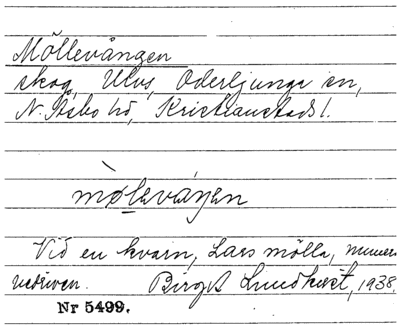 Möllevången
skog, Ulvs, Oderljunga sn,
N. Åsbo hd, Kristianstads l.
mø̀levaŋen
Vid en kvarn, Lars mölla, numera
nedriven. Birgit Lundkvist, 1938.
Nr 5499.